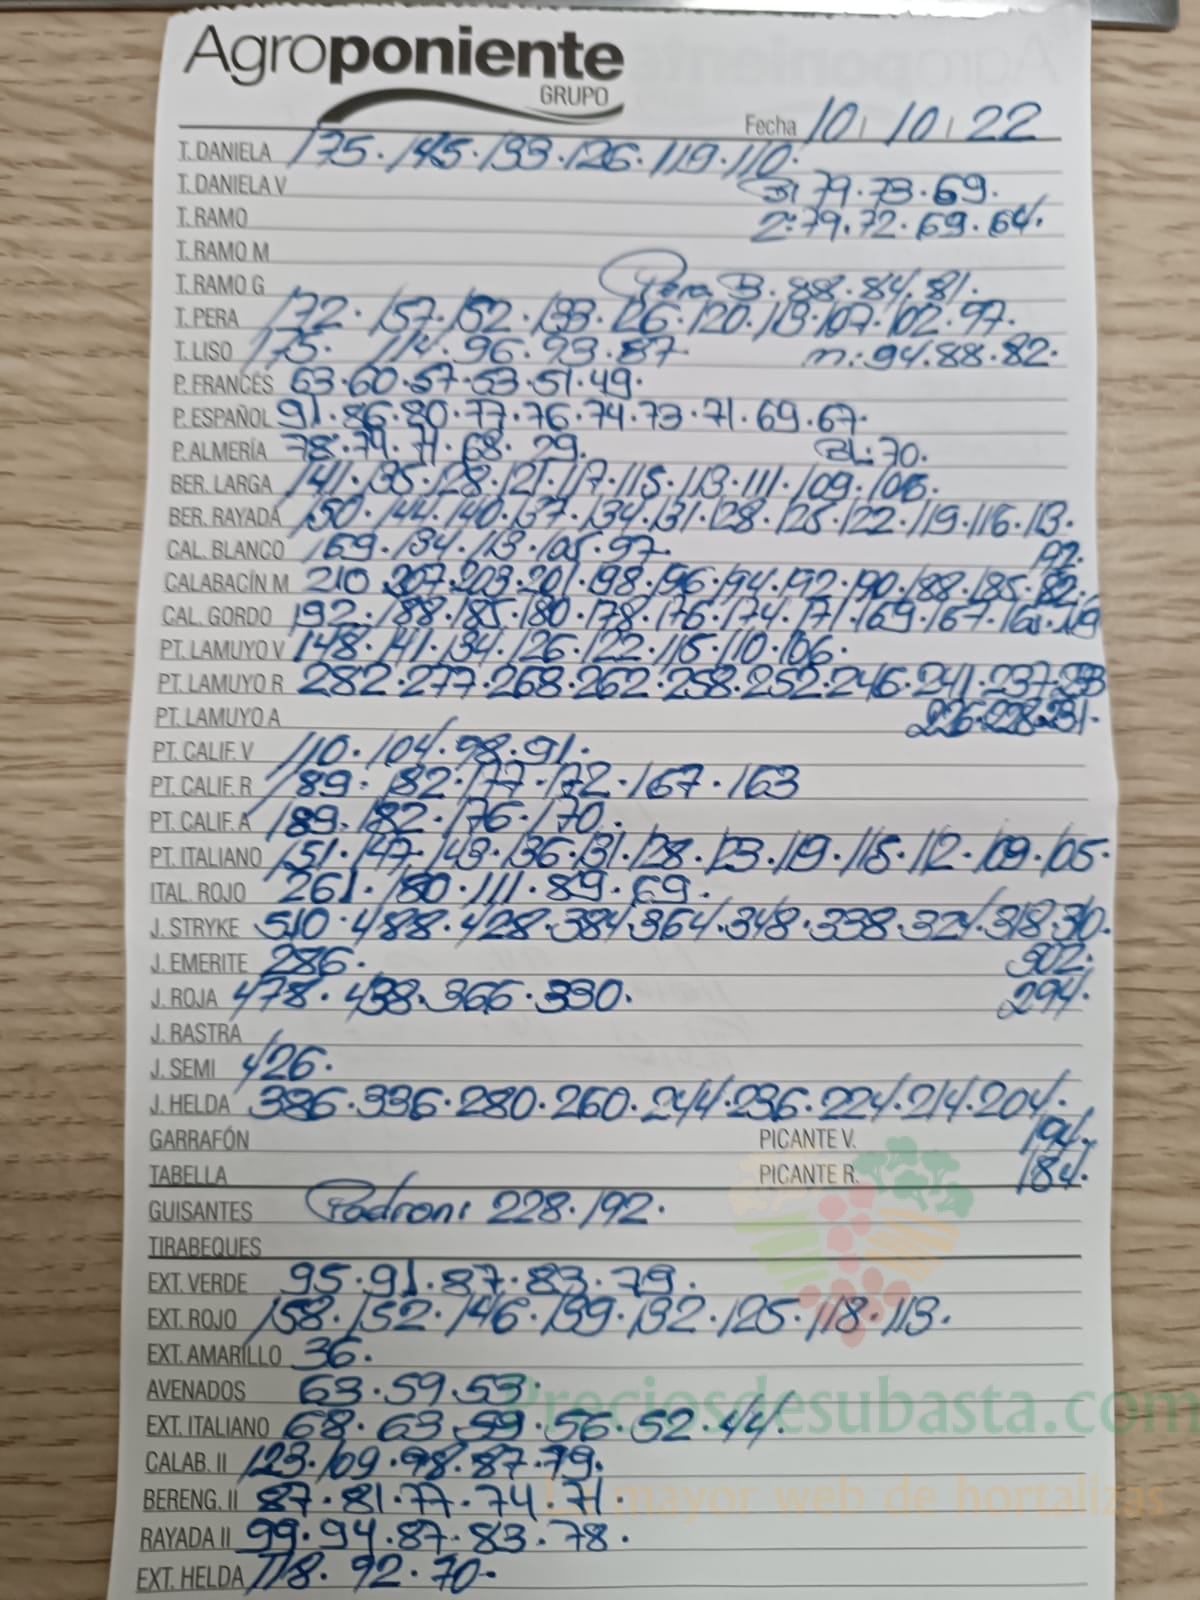 Agroponiente
GRUPO
Fecha 10/10/22
T. DANIELA 175.145.133.126.119.110.
T. DANELA V B1 79.73.69.
T. RAMO 2:79.72.69.64.
T. RAMO M
T. RAMO G Pera B.88.84.81.
T. PERA 172.157.152.133.126.120.113.107.102.97.
T. LISO 175. 114.96.93.87. m:94.88.82.
P. FRANCÉS 63.60.57.53.51.49.
P. ESPAÑOL 91.86.80.77.76.74.73.71.69.67.
P. ALMERÍA 78.74.71.68. 29. BL.70.
BER. LARGA 141.135.128.121.117.115.113.111.109.106.
BER. RAYADA 150.144.140.137.134.131.128.125.122.119.116.113.
CAL. BLANCO 169.134.113.105.97.
CALABACÍN M 210.207.203.201.198.196.194.192.190.188.185.182.
CAL. GORDO 192.188.185.180.178.176.174.171.169.167.
PT. LAMUYO V 148.141.134.126.122.115.110.106.
PT. LAMUYO R 282.277.268.262.258.252.246.241.237.233
PT. LAMUYO A 226.228.231.
PT. CALIF. V 110.104.98.91.
PT. CALIF. R 189.182.177.172.167.163
PT. CALIF. A 189.182.176.170.
PT. ITALIANO 151.147.143.136.131.128.123.119.115.112.109.105.
ITAL. ROJO 261.180.111.89.69.
J. STRYKE 510.488.428.384.364.348.338.324.318.310.
J. EMERITE 286. 302.
J. ROJA 478.438.366.330. 294.
J. RASTRA
J. SEMI 426.
J. HELDA 386.336.280.260.244.236.224.214.204.
GARRAFÓN PICANTE V. 194.
TABELLA PICANTE R. 184.
GUISANTES Padron: 228.192.
TIRABEQUES
EXT. VERDE 95.91.87.83.79.
EXT. ROJO 158.152.146.139.132.125.118.113.
EXT. AMARILLO 36.
AVENADOS 63.59.53.
Preciosdesubasta.com
EXT. ITALIANO 68.63.59.56.52.44.
CALAB. II 123.109.98.87.79.
BERENG. II 87.81.77.74.71.
mayor web de hortalizas
RAYADA II 99.94.87.83.78.
EXT. HELDA 118.92.70.